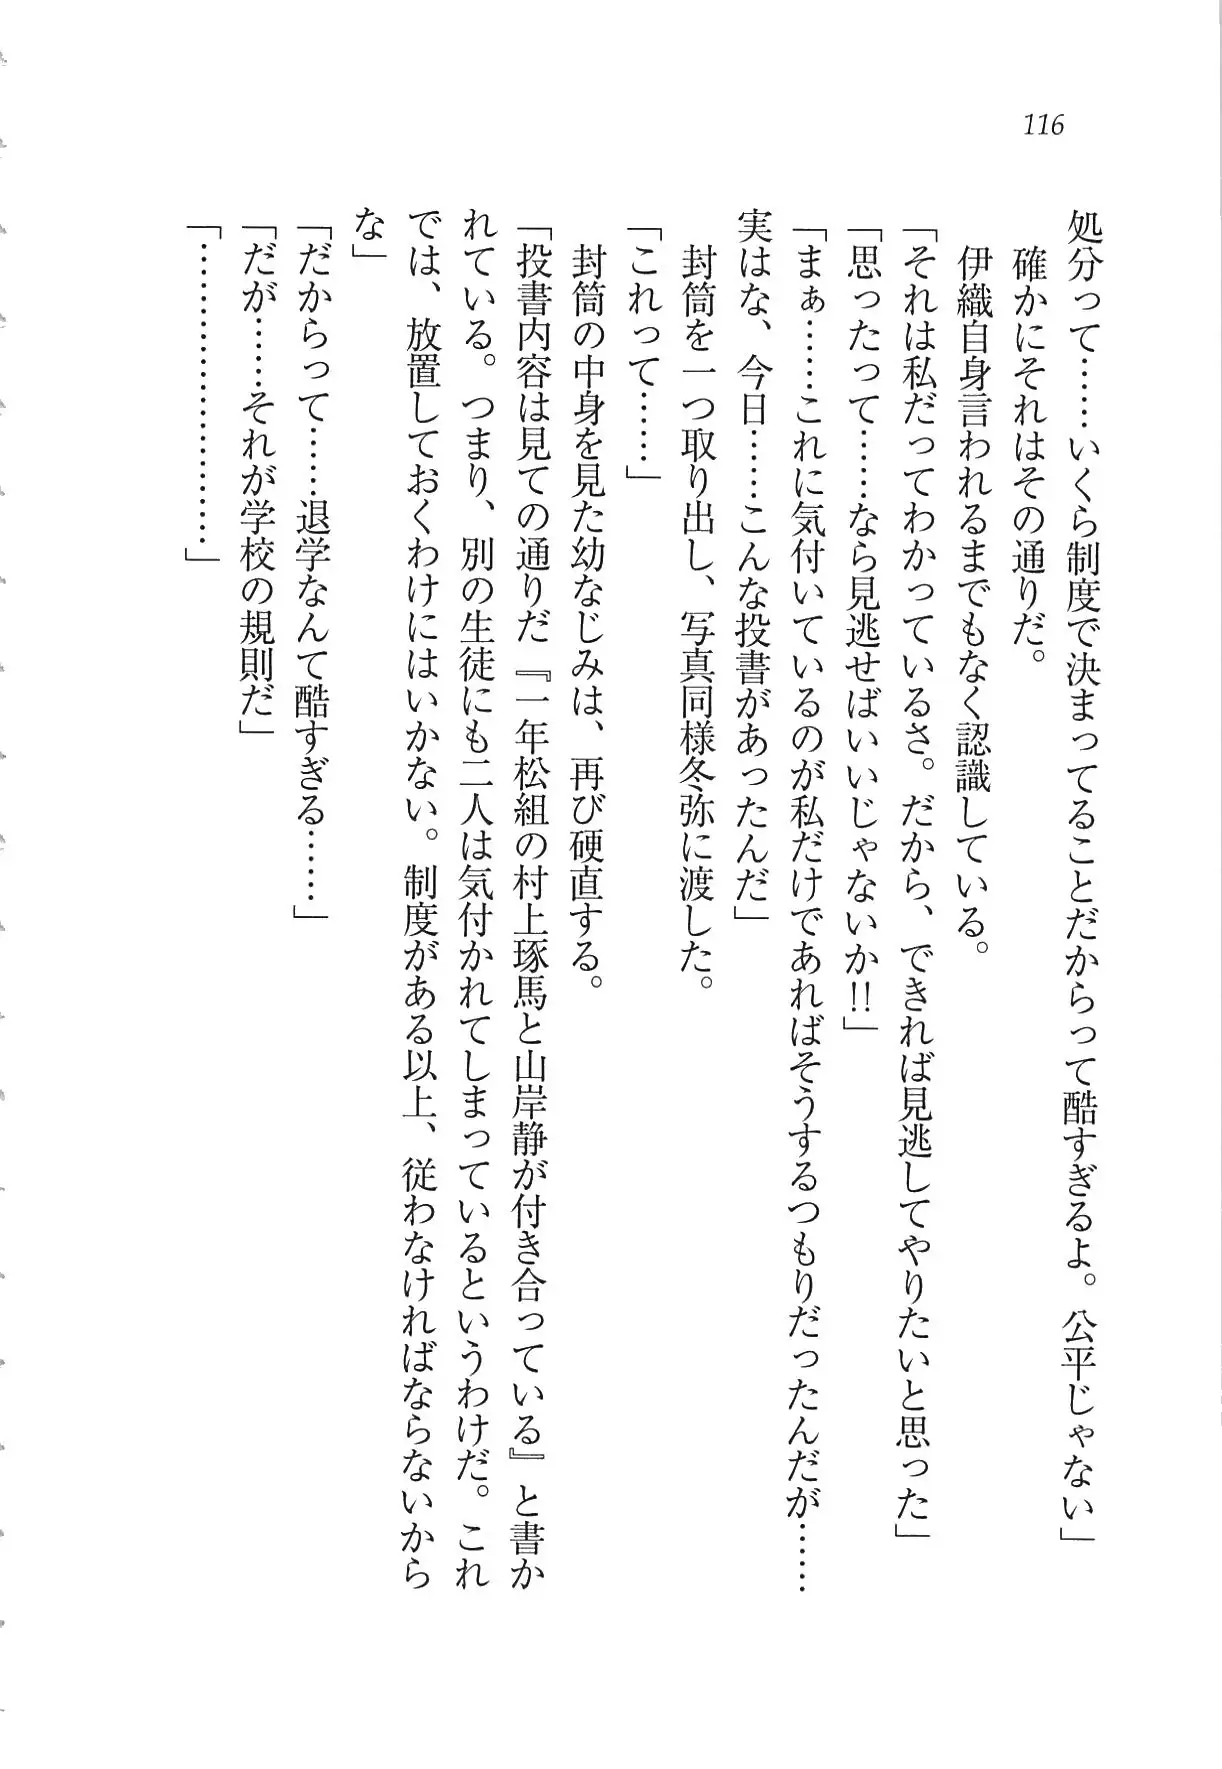 116
処分って……いくら制度で決まってることだからって酷すぎるよ。公平じゃない」
　確かにそれはその通りだ。
　伊織自身言われるまでもなく認識している。
「それは私だってわかっているさ。だから、できれば見逃してやりたいと思った」
「思ったって……なら見逃せばいいじゃないか!!」
「まぁ……これに気付いているのが私だけであればそうするつもりだったんだが……
実はな、今日……こんな投書があったんだ」
　封筒を一つ取り出し、写真同様冬弥に渡した。
「これって……」
　封筒の中身を見た幼なじみは、再び硬直する。
「投書内容は見ての通りだ『一年松組の村上琢馬と山岸静が付き合っている』と書か
れている。つまり、別の生徒にも二人は気付かれてしまっているというわけだ。これ
では、放置しておくわけにはいかない。制度がある以上、従わなければならないから
な」
「だからって……退学なんて酷すぎる……」
「だが……それが学校の規則だ」
「…………………」